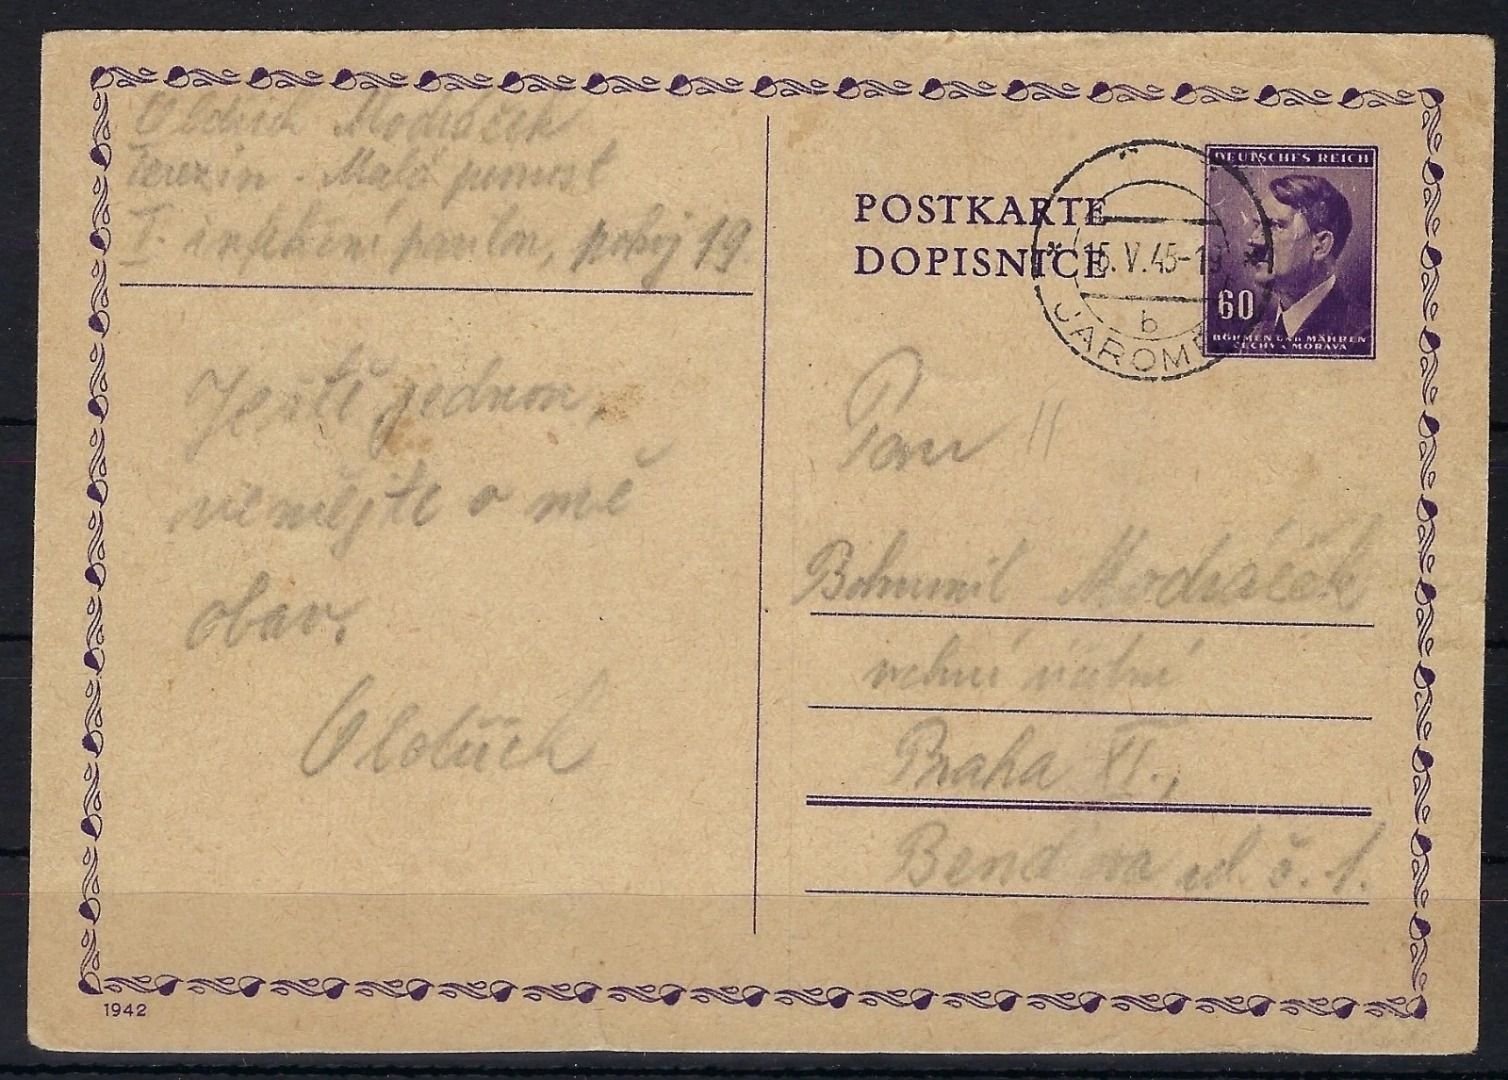 Oldřich Modráček
Terezín - Malá pevnost
I. infekční pavilon, pokoj 19.
Ještě jednou,
nemějte o mě
obav.
Oldřich
POSTKARTE
DOPISNICE
15.V.45-19
b
JAROMĚ
DEUTSCHES REICH
60
BÖHMEN UND MÄHREN
ČECHY A MORAVA
Pan
Bohumil Modráček
vrchní účetní
Praha XI.,
ul. č. 1.
1942